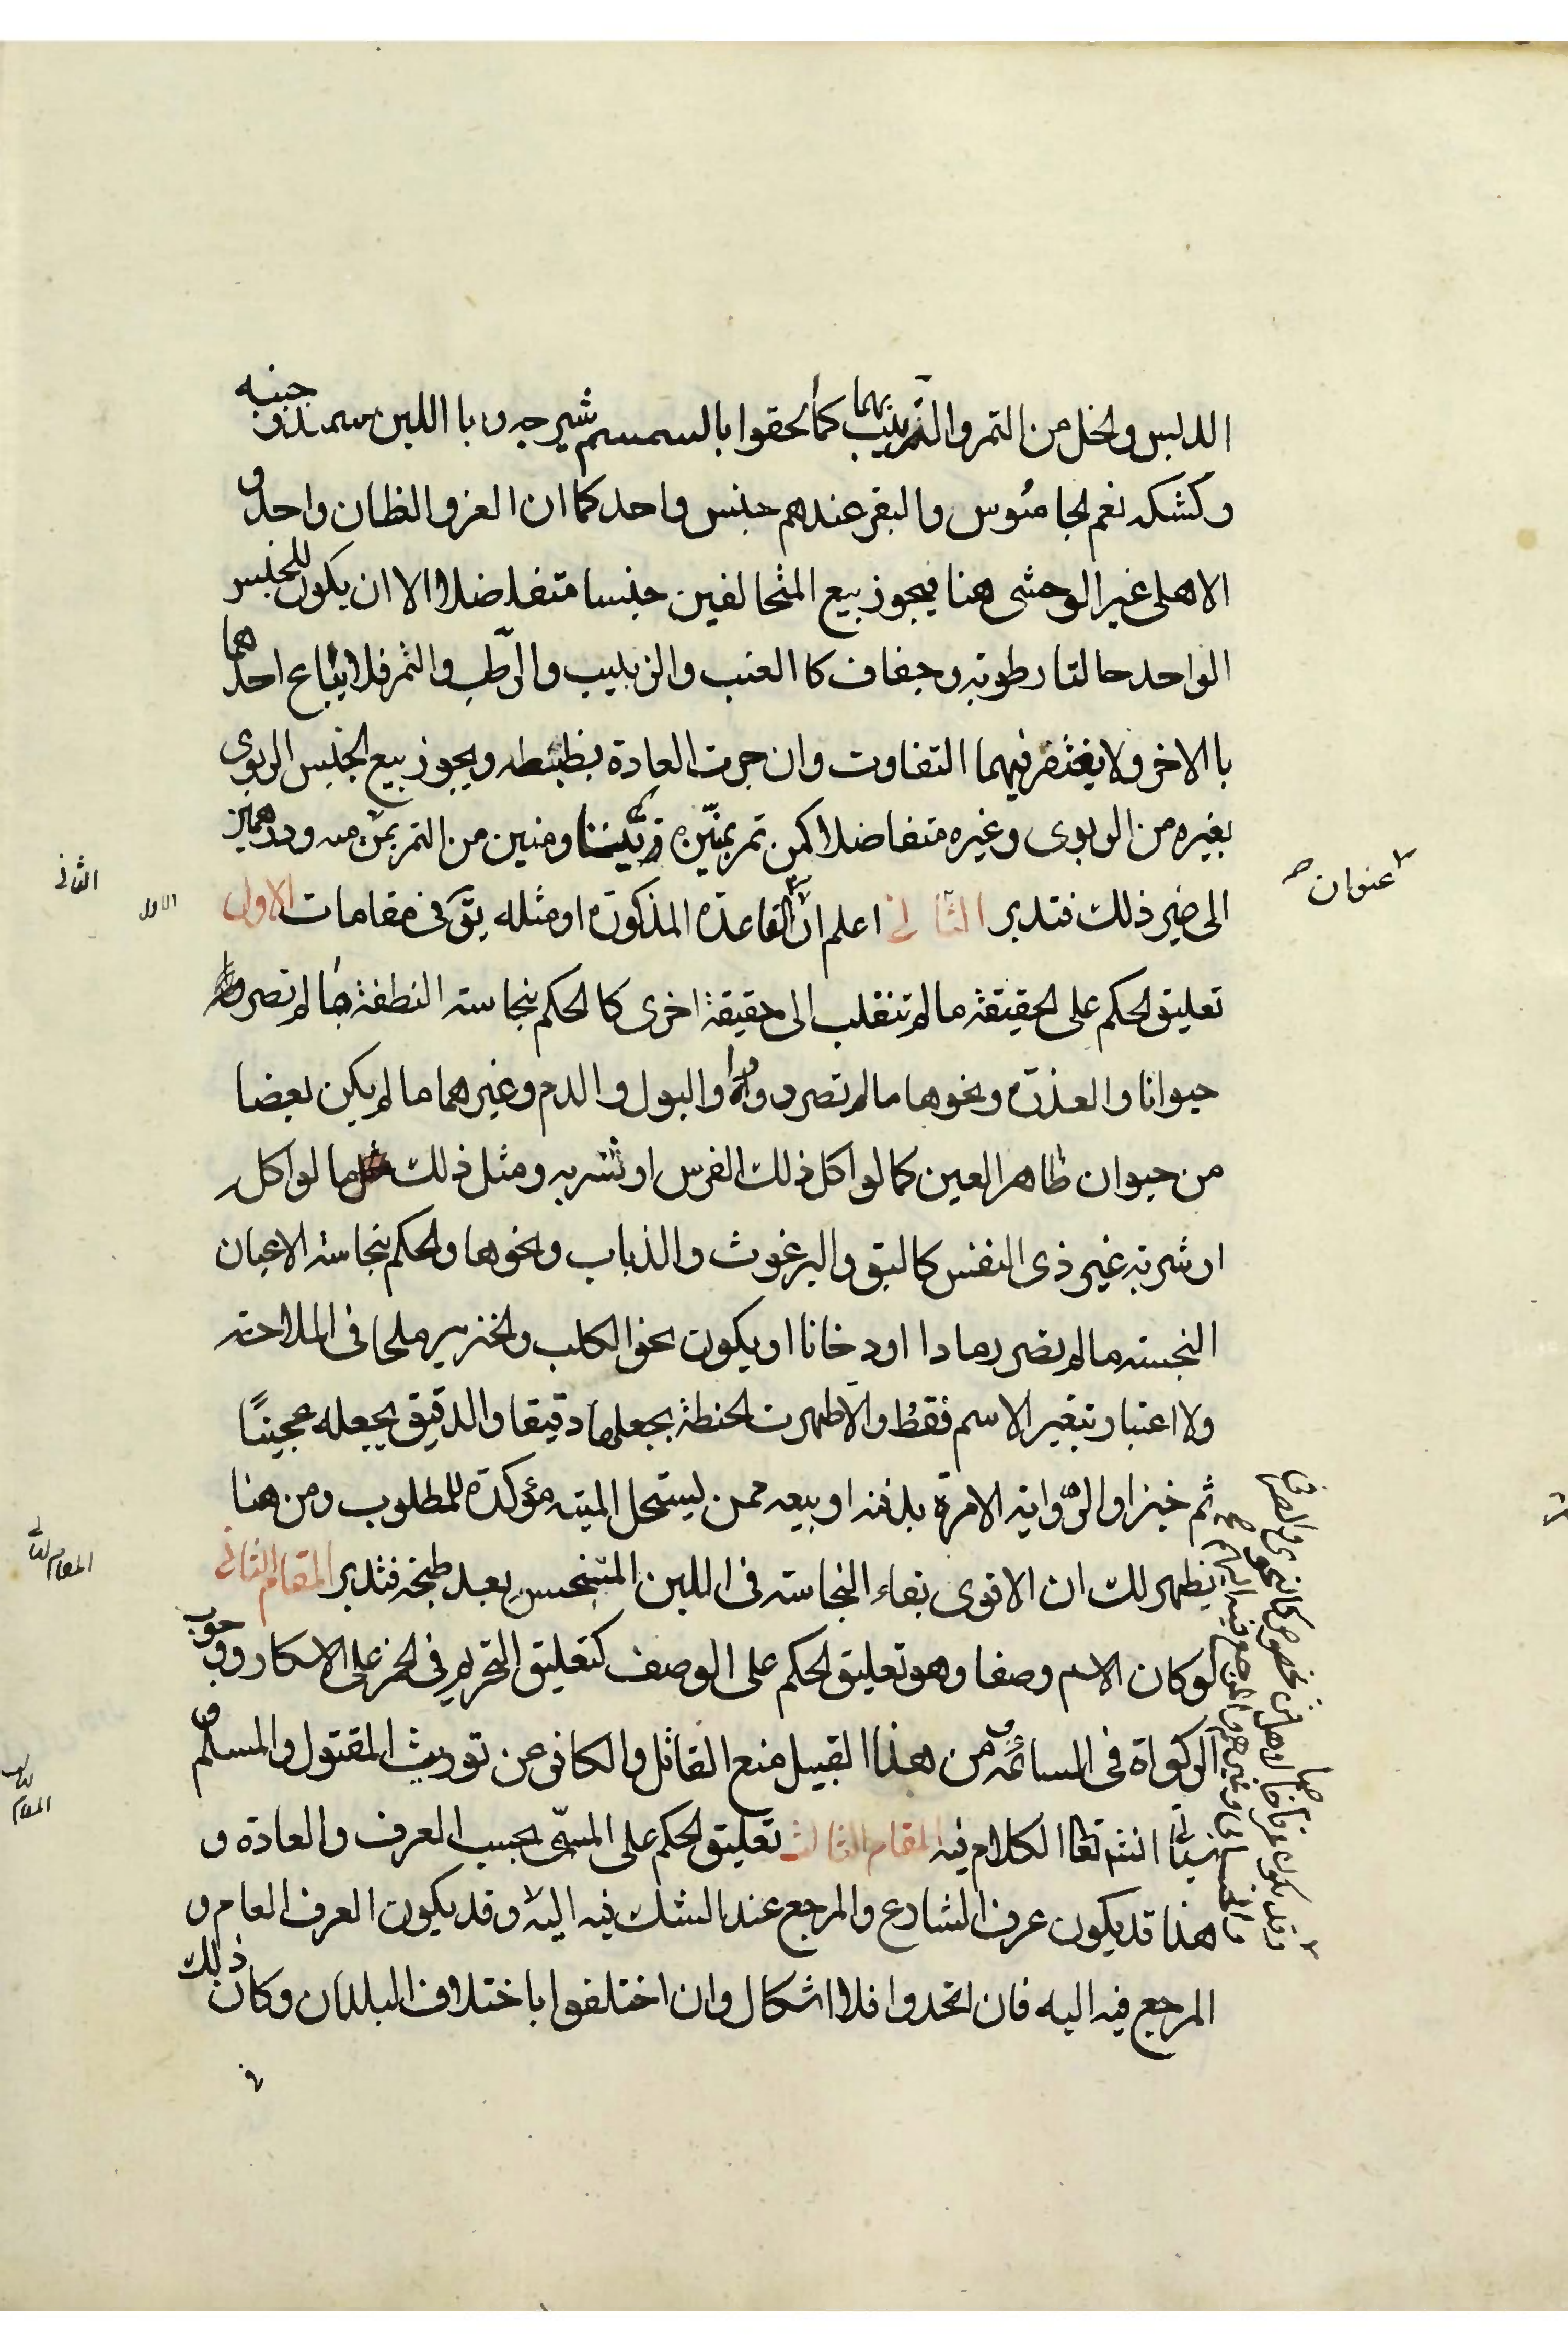 الدبس والخل من التمر والزبيب بهما كما الحقوا بالسمسم شيرجه و باا اللبن سمنه و جبنه
وكشكه نعم الجاموس والبقر عندهم جنس واحد كما ان الغز والظان واحد و
الاهلى غير الوحشى هنا فيجوز بيع المتخالفين جنسا متفاضلا الا ان يكون للجنس
الواحد حالتا رطوبة وجفاف كا العنب والزبيب والرّطب والتمر فلا يباع احدهما
با الاخر ولا يغتفر فيهما التفاوت وان جرت العادة بظبطه ويجوز بيع الجنس الربوى
بغيره من الربوى وغيره متفاضلا كمن تمر بمنّين زبيبا ومنين من التمر بمن منه ودرهمين
الى غير ذلك فتدبر الثانى اعلم انّ القاعدة المذكورة او مثله يتق فى مقامات الاول
تعليق الحكم على الحقيقة ما لم تنقلب الى حقيقة اخرى كا الحكم بنجاسته النطفة ما لم تصر
حيوانا والعذرة ونحوها ما لم تصر دودا والبول والدم وغيرهما ما لم يكن بعضا
من حيوان طاهر العين كما لو اكل ذلك الفرس او شربه ومثل ذلك ما لو اكل
او شربه غير ذى النفس كالبق والبرغوث والذباب ونحوها والحكم بنجاسته الاعيان
النجسته ما لم تصر رمادا او دخانا او يكون نحو الكلب والخنزير ملحا فى الملاحته
ولا اعتبار بتغير الاسم فقط والا طهرت الحنطة بجعلها دقيقا والدقيق بجعله عجينًا
ثم خبزا والرّواية الامرة بدفنه او بيعه ممن يستحل الميته مؤكدة للمطلوب ومن هنا
يظهر لك ان الاقوى بقاء النجاسته فى اللبن المتنجس بعد طبخه فتدبر المقام الثانى
لو كان الاسم وصفا وهو تعليق الحكم على الوصف كتعليق التحريم فى الخمر على الاسكار ووجوب
الزكواة فى السائمة ومن هذا القبيل منع القاتل والكافر عن توريث المقتول والمسلم و
سياتى انشم تعا الكلام فيه المقام الثالث تعليق الحكم على المسمّى بحسب العرف والعادة و
هذا قد يكون عرف الشارع والمرجع عند الشك فيه اليه وقد يكون العرف العام و
المرجع فيه اليه فان اتحدوا فلا اشكال وان اختلفوا باختلاف البلدان وكان ذلك
عنوان
الاول
الثانى
المقام الثانى
المقام الثالث